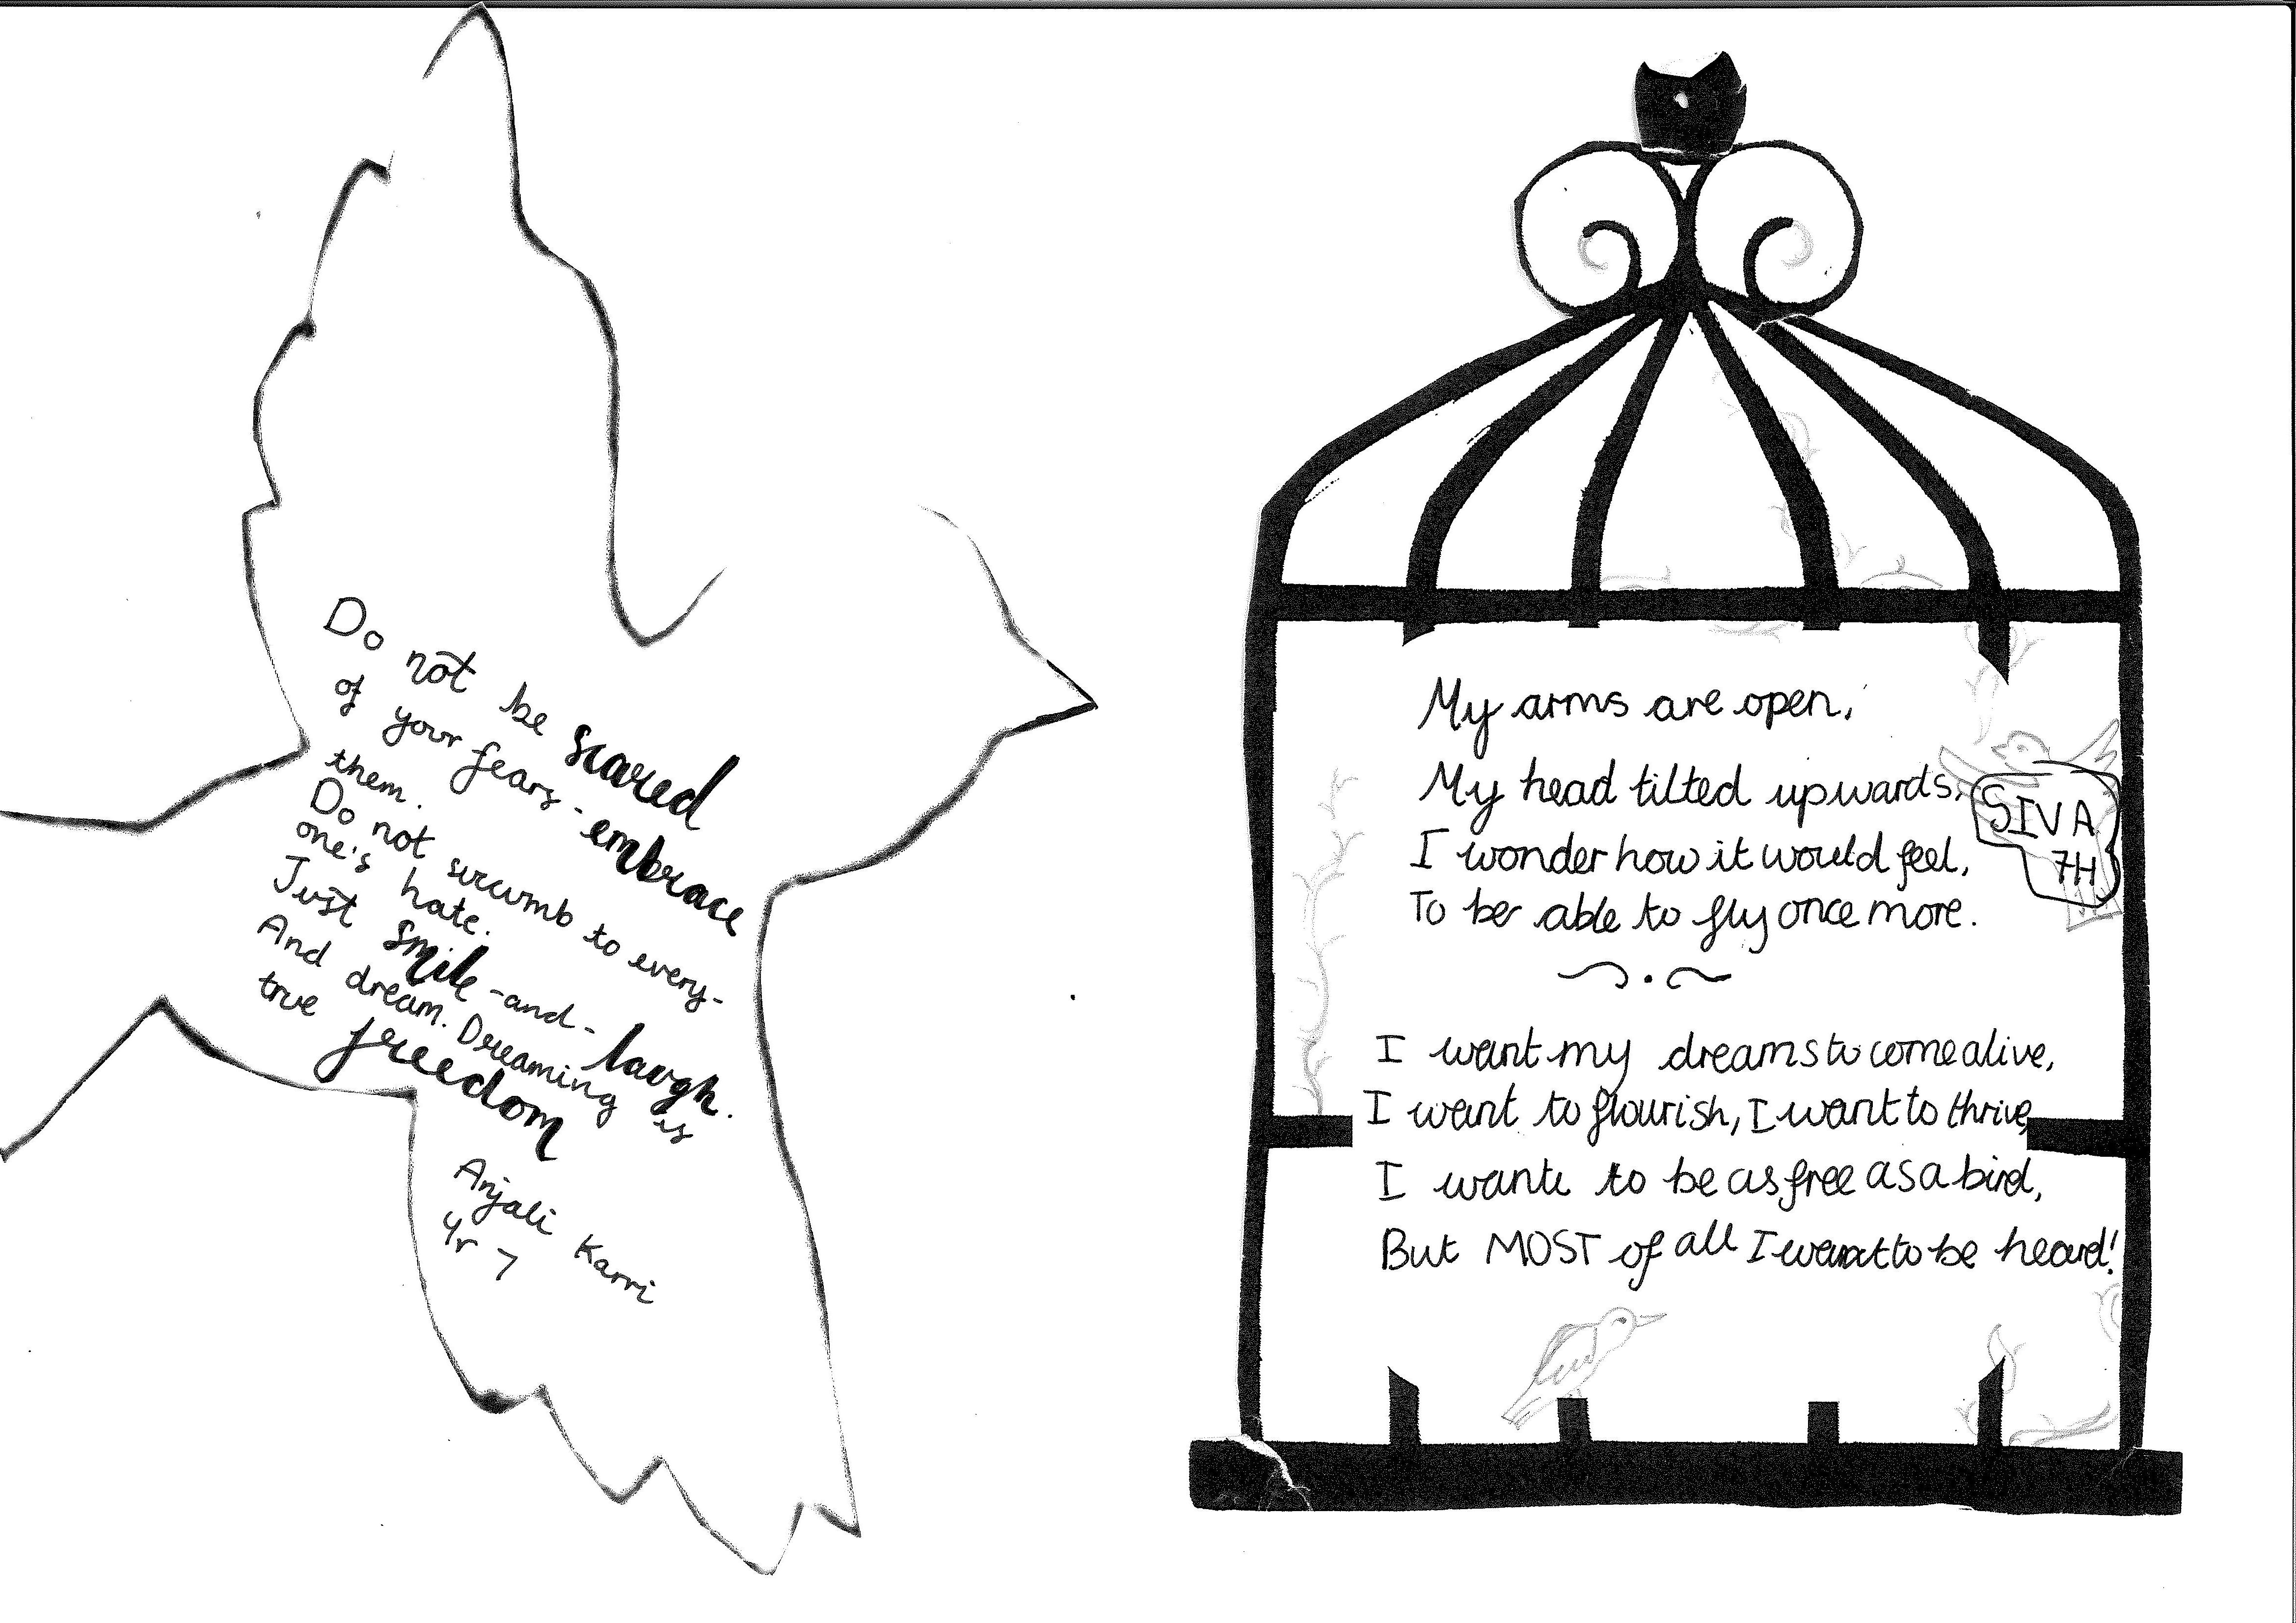 Do not be scared
of your fears - embrace
them.
Do not succumb to every-
one's hate.
Just smile - and - laugh.
And dream. Dreaming is
true freedom
Anjali Karri
Yr 7
My arms are open,
My head tilted upwards,
I wonder how it would feel,
To be able to fly once more.
SIVA
7H
I want my dreams to come alive,
I want to flourish, I want to thrive,
I want to be as free as a bird,
But MOST of all I want to be heard!